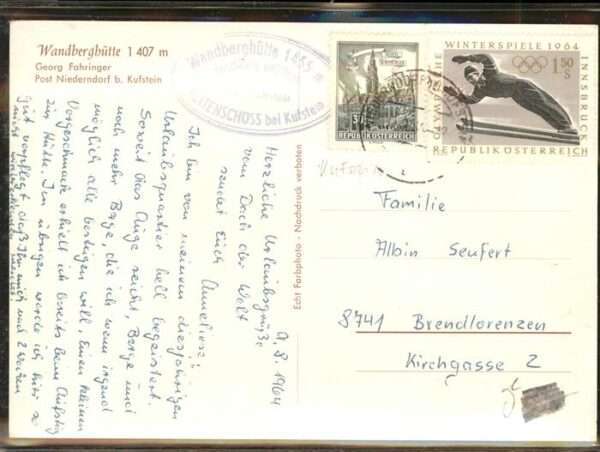 Wandberghütte 1 407 m
Georg Fahringer
Post Niederndorf b. Kufstein
Wandberghütte 1465 m
TENSCHOSS bei Kufstein
30
REPUBLIK ÖSTERREICH
IX. OLYMPISCHE WINTERSPIELE 1964 INNSBRUCK
1.50
S
REPUBLIK ÖSTERREICH
Echt Farbphoto - Nachdruck verboten
9.8.1964
Herzliche Urlaubsgrüße
vom Dach der Welt
sendet Euch Anneliese!
Ich bin von meinem diesjährigen
Urlaubsquartier hell begeistert.
Soweit das Auge reicht, Berge und
noch mehr Berge, die ich wenn irgend
möglich alle besteigen will. Einen kleinen
Vorgeschmack erhielt ich bereits beim Aufstieg
zur Hütte. Im übrigen werde ich hier so
gut verpflegt, daß Ihr mich nach 2 Wochen
Familie
Albin Seufert
8741 Brendlorenzen
Kirchgasse 2